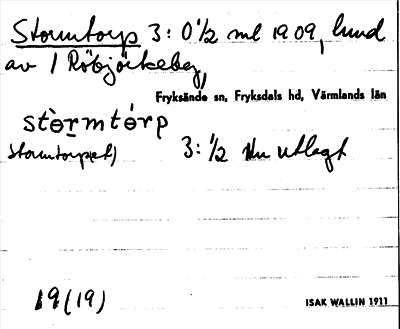 Stormtorp 3: 0 1/2 ml 1909, lund
av 1 Röbjörkeberg,
Fryksände sn, Fryksdals hd, Värmlands län
stòrmtórp
Stormtorp(et) 3: 1/2 Nu utlagt
19 (19)
ISAK WALLIN 1911